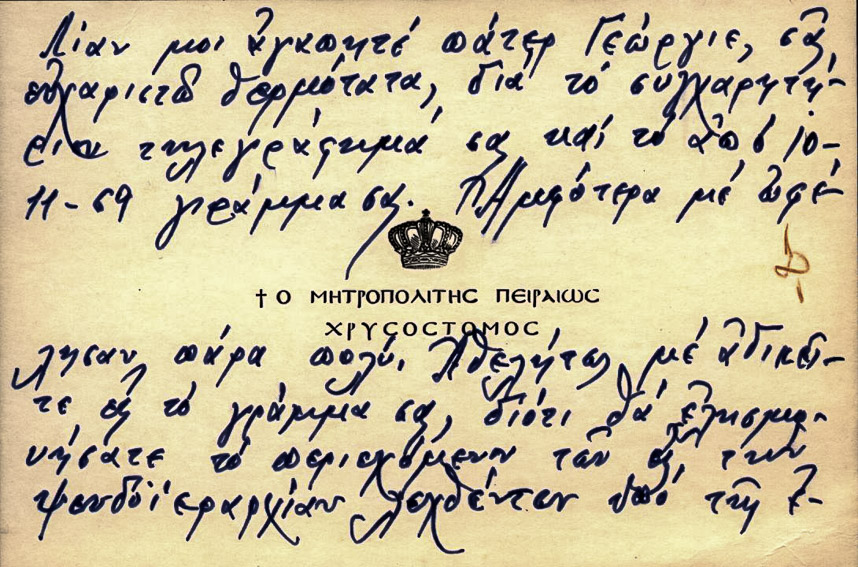 Λίαν μοι ἀγαπητέ πάτερ Γεώργιε, σᾶς
εὐχαριστῶ θερμότατα, διά τό συγχαρητή-
ριον τηλεγράφημά σας καί τό ἀπό 10-
11-69 γράμμα σας. Ἀμφότερα μέ ὠφέ-
† Ο ΜΗΤΡΟΠΟΛΙΤΗΣ ΠΕΙΡΑΙΩΣ
ΧΡΥΣΟΣΤΟΜΟΣ
λησαν πάρα πολύ. Ἀθελήτως μέ ἀδικεῖ-
τε εἰς τό γράμμα σας, διότι θά ἐλησμο-
νήσατε τό περιεχόμενον τῶν εἰς τήν
ψευδοϊεραρχίαν λεχθέντων ὑπό τῆς Ἐ-